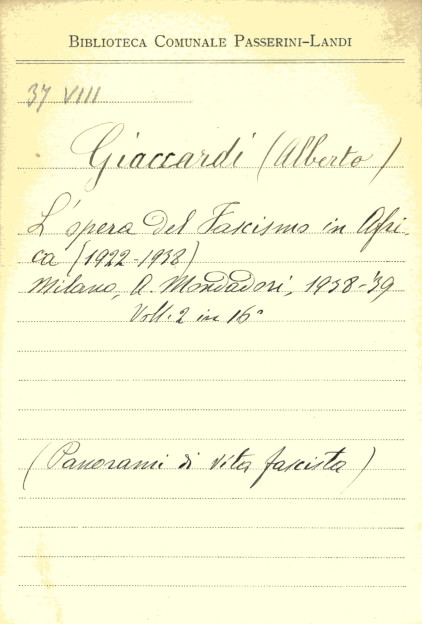 BIBLIOTECA COMUNALE PASSERINI-LANDI
37 VIII
Giaccardi (Alberto)
L'opera del Fascismo in Afri-
ca (1922-1938)
Milano, A. Mondadori, 1938-39
Voll. 2 in 16°
(Panorami di vita fascista)